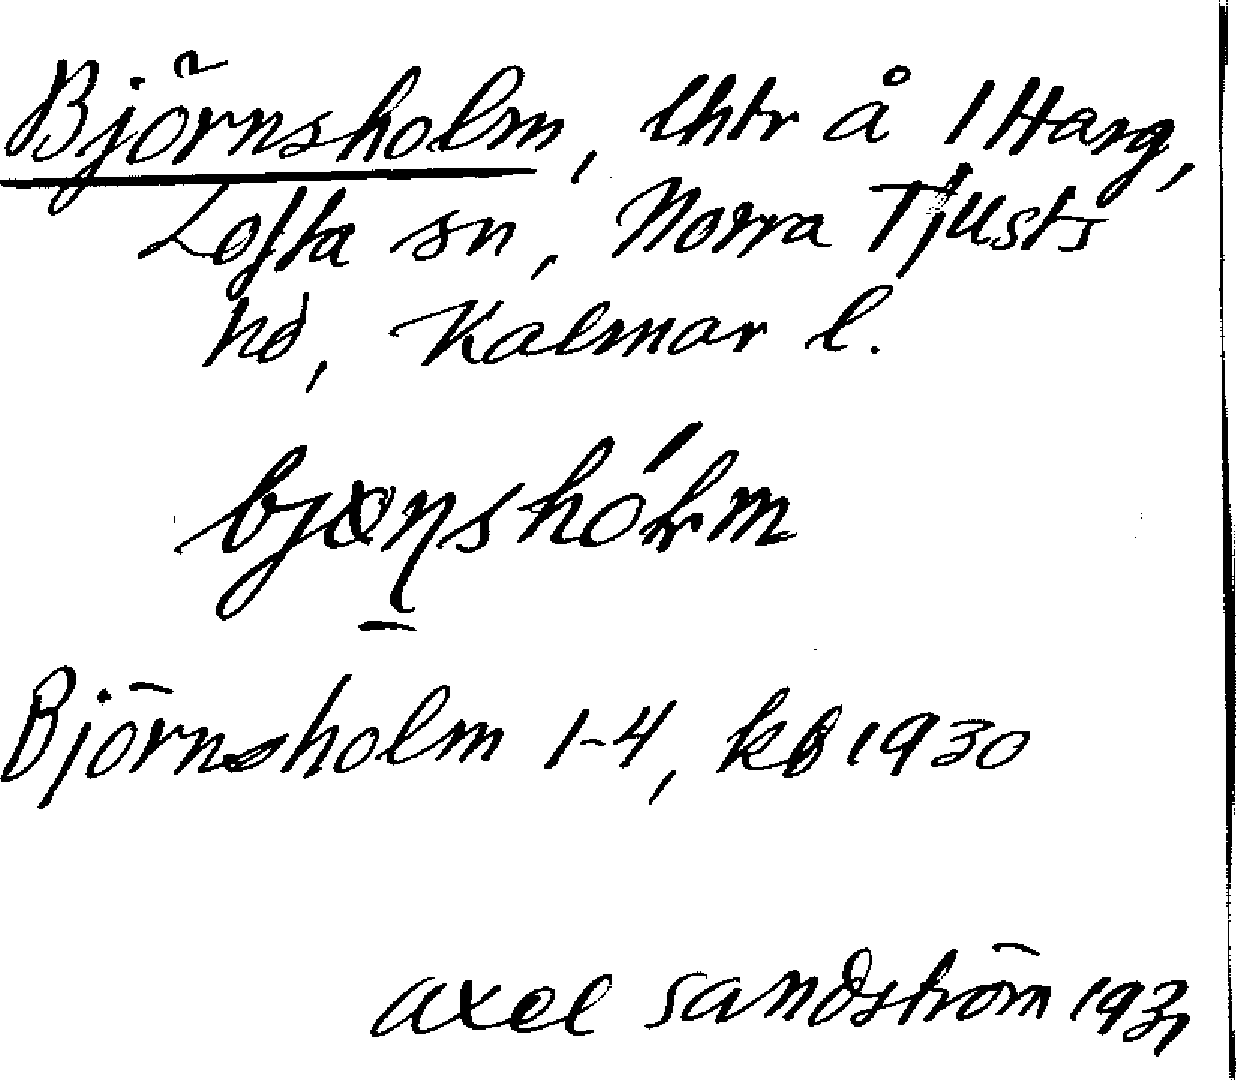 Björnsholm, lhtr å 1 Harg,
Lofta sn, Norra Tjusts
hd, Kalmar l.
bjɷn̠shól̵m
Björnsholm 1-4, kb 1930
Axel Sandström 1931